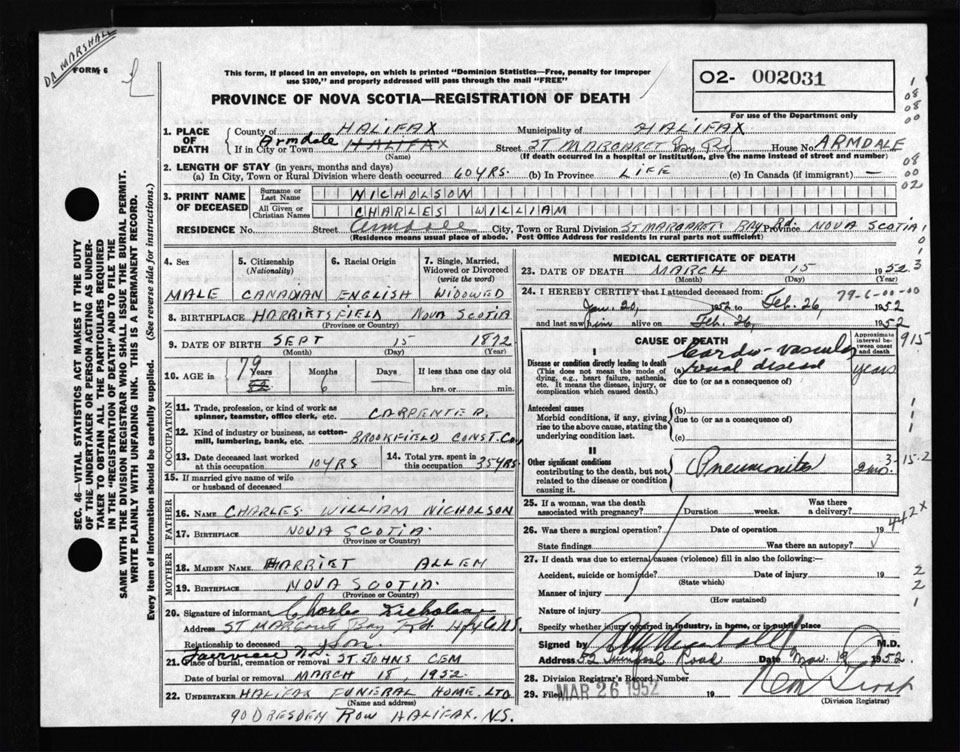 DR MARSHALL
FORM 6
This form, if placed in an envelope, on which is printed "Dominion Statistics—Free, penalty for improper
use $300," and properly addressed will pass through the mail "FREE"
PROVINCE OF NOVA SCOTIA—REGISTRATION OF DEATH
O2- 002031
For use of the Department only
1. PLACE OF DEATH
County of HALIFAX Municipality of HALIFAX
If in City or Town Armdale HALIFAX Street ST MARGARET Bay Rd House No. ARMDALE
(Name) (If death occurred in a hospital or institution, give the name instead of street and number)
2. LENGTH OF STAY (in years, months and days)
(a) In City, Town or Rural Division where death occurred 60 YRS. (b) In Province LIFE (c) In Canada (if immigrant) —
3. PRINT NAME OF DECEASED
Surname or Last Name NICHOLSON
All Given or Christian Names CHARLES WILLIAM
RESIDENCE No. Street Armdale City, Town or Rural Division ST MARGARETS BAY Rd. Province NOVA SCOTIA
(Residence means usual place of abode. Post Office Address for residents in rural parts not sufficient)
4. Sex MALE
5. Citizenship (Nationality) CANADIAN
6. Racial Origin ENGLISH
7. Single, Married, Widowed or Divorced (write the word) WIDOWED
8. BIRTHPLACE HARRIETSFIELD NOVA SCOTIA
(Province or Country)
9. DATE OF BIRTH SEPT 15 1872
(Month) (Day) (Year)
10. AGE 79 Years 6 Months Days If less than one day old
hrs. or min.
OCCUPATION
11. Trade, profession, or kind of work as spinner, teamster, office clerk, etc. CARPENTER.
12. Kind of industry or business, as cotton-mill, lumbering, bank, etc. BROOKFIELD CONST. Coy
13. Date deceased last worked at this occupation 10 YRS
14. Total yrs. spent in this occupation 35 YRS.
15. If married give name of wife or husband of deceased
FATHER
16. NAME CHARLES WILLIAM NICHOLSON
17. BIRTHPLACE NOVA SCOTIA.
(Province or Country)
MOTHER
18. MAIDEN NAME HARRIET ALLEN
19. BIRTHPLACE NOVA SCOTIA.
(Province or Country)
20. Signature of informant Charles Nicholson
Address ST MARGARET Bay Rd. Hfx Co N.S.
Relationship to deceased Son.
Fairview N.S.
21. Place of burial, cremation or removal ST JOHNS CEM
Date of burial or removal MARCH 18, 1952.
22. UNDERTAKER HALIFAX FUNERAL HOME. LTD
(Name and address)
90 DRESDEN ROW HALIFAX. N.S.
MEDICAL CERTIFICATE OF DEATH
23. DATE OF DEATH MARCH 15 1952.
(Month) (Day) (Year)
24. I HEREBY CERTIFY that I attended deceased from: 79-6-00-00
Jan. 20, 1952 to Feb. 26, 1952
and last saw him alive on Feb. 26, 1952
CAUSE OF DEATH
Approximate interval between onset and death
915
I
Disease or condition directly leading to death
(This does not mean the mode of dying, e.g., heart failure, asthenia, etc. It means the disease, injury, or complication which caused death.)
(a) Cardio-vascular renal disease years
due to (or as a consequence of)
Antecedent causes
Morbid conditions, if any, giving rise to the above cause, stating the underlying condition last.
(b)
due to (or as a consequence of)
(c)
II
Other significant conditions
contributing to the death, but not related to the disease or condition causing it.
Pneumonitis 2 mo.
3-15-2
25. If a woman, was the death associated with pregnancy? Duration weeks. Was there a delivery?
442X
26. Was there a surgical operation? Date of operation 19
State findings Was there an autopsy?
27. If death was due to external causes (violence) fill in also the following:
Accident, suicide or homicide? Date of injury 19
(State which)
Manner of injury
(How sustained)
Nature of injury
Specify whether injury occurred in industry, in home, or in public place
Signed by M.D.
Address 52 Road Date Mar. 19 1952.
28. Division Registrar's Record Number
29. Filed MAR 26 1952 19
(Division Registrar)
SEC. 46—VITAL STATISTICS ACT MAKES IT THE DUTY
OF THE UNDERTAKER OR PERSON ACTING AS UNDER-
TAKER TO OBTAIN ALL THE PARTICULARS REQUIRED
IN THE "REGISTRATION OF DEATH" AND TO FILE THE
SAME WITH THE DIVISION REGISTRAR WHO SHALL ISSUE THE BURIAL PERMIT.
WRITE PLAINLY WITH UNFADING INK. THIS IS A PERMANENT RECORD.
Every item of information should be carefully supplied. (See reverse side for instructions.)